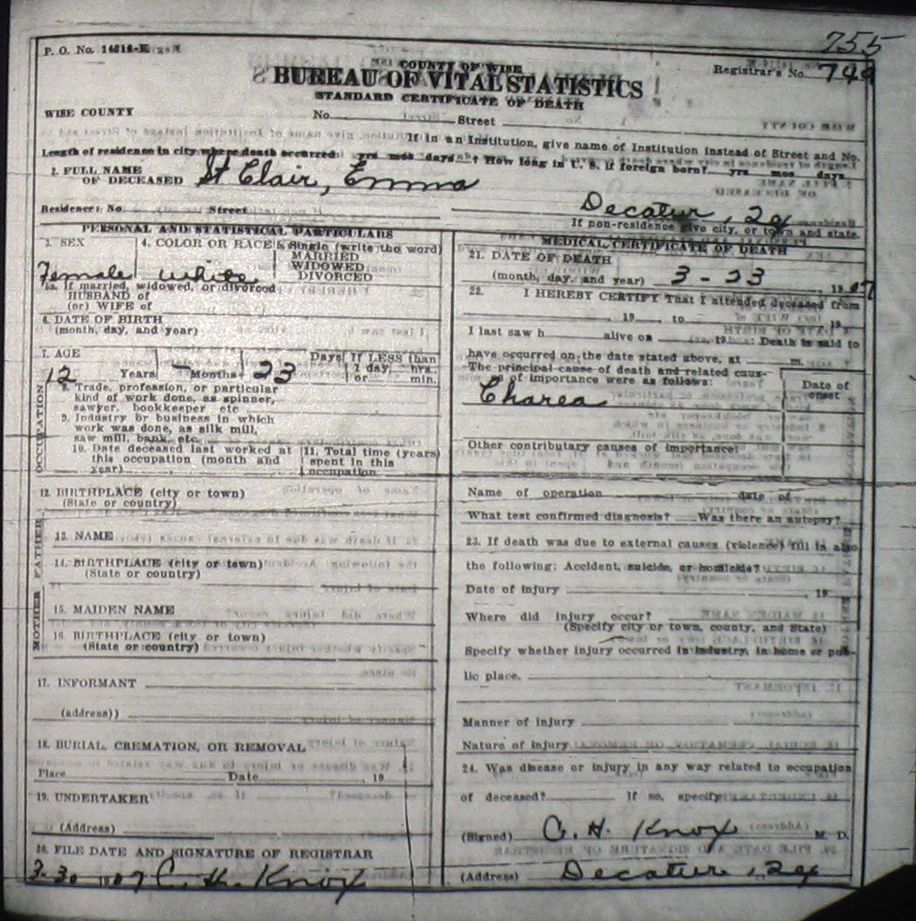 755
P. O. No. 14216-E
COUNTY OF WISE
Registrar's No. 749
BUREAU OF VITAL STATISTICS
STANDARD CERTIFICATE OF DEATH
WISE COUNTY
No. Street
If in an Institution, give name of Institution instead of Street and No.
Length of residence in city where death occurred: yrs mos days How long in U. S. if foreign born? yrs mos days
2. FULL NAME
OF DECEASED St Clair, Emma
Decatur,
Residence: No. Street
If non-residence give city, or town and state.
PERSONAL AND STATISTICAL PARTICULARS
3. SEX 4. COLOR OR RACE 5. Single (write the word)
MARRIED
WIDOWED
Female white DIVORCED
5a. If married, widowed, or divorced
HUSBAND of
(or) WIFE of
6. DATE OF BIRTH
(month, day, and year)
7. AGE Days If LESS than
12 Years Months 23 1 day, hrs.
or min.
OCCUPATION
8. Trade, profession, or particular
kind of work done, as spinner,
sawyer, bookkeeper etc
9. Industry or business in which
work was done, as silk mill,
saw mill, bank, etc
10. Date deceased last worked at
this occupation (month and
year)
11. Total time (years)
spent in this
occupation
12. BIRTHPLACE (city or town)
(State or country)
FATHER
13. NAME
14. BIRTHPLACE (city or town)
(State or country)
MOTHER
15. MAIDEN NAME
16. BIRTHPLACE (city or town)
(State or country)
17. INFORMANT
(address))
18. BURIAL, CREMATION, OR REMOVAL
Place Date 19
19. UNDERTAKER
(Address)
20. FILE DATE AND SIGNATURE OF REGISTRAR
3-30 1907 C. H. Knox
MEDICAL CERTIFICATE OF DEATH
21. DATE OF DEATH
(month, day, and year) 3-23 1907
22. I HEREBY CERTIFY That I attended deceased from
19 to 19
I last saw h alive on 19 : Death is said to
have occurred on the date stated above, at m.
The principal cause of death and related caus-
es of importance were as follows:
Date of
onset
Charea
Other contributary causes of importance:
Name of operation date of
What test confirmed diagnosis? Was there an autopsy?
23. If death was due to external causes (violence) fill in also
the following: Accident, suicide, or homicide?
Date of injury 19
Where did injury occur?
(Specify city or town, county, and State)
Specify whether injury occurred in industry, in home or pub-
lic place.
Manner of injury
Nature of injury
24. Was disease or injury in any way related to occupation
of deceased? If so, specify
(Signed) C. H. Knox M. D.
(Address) Decatur,